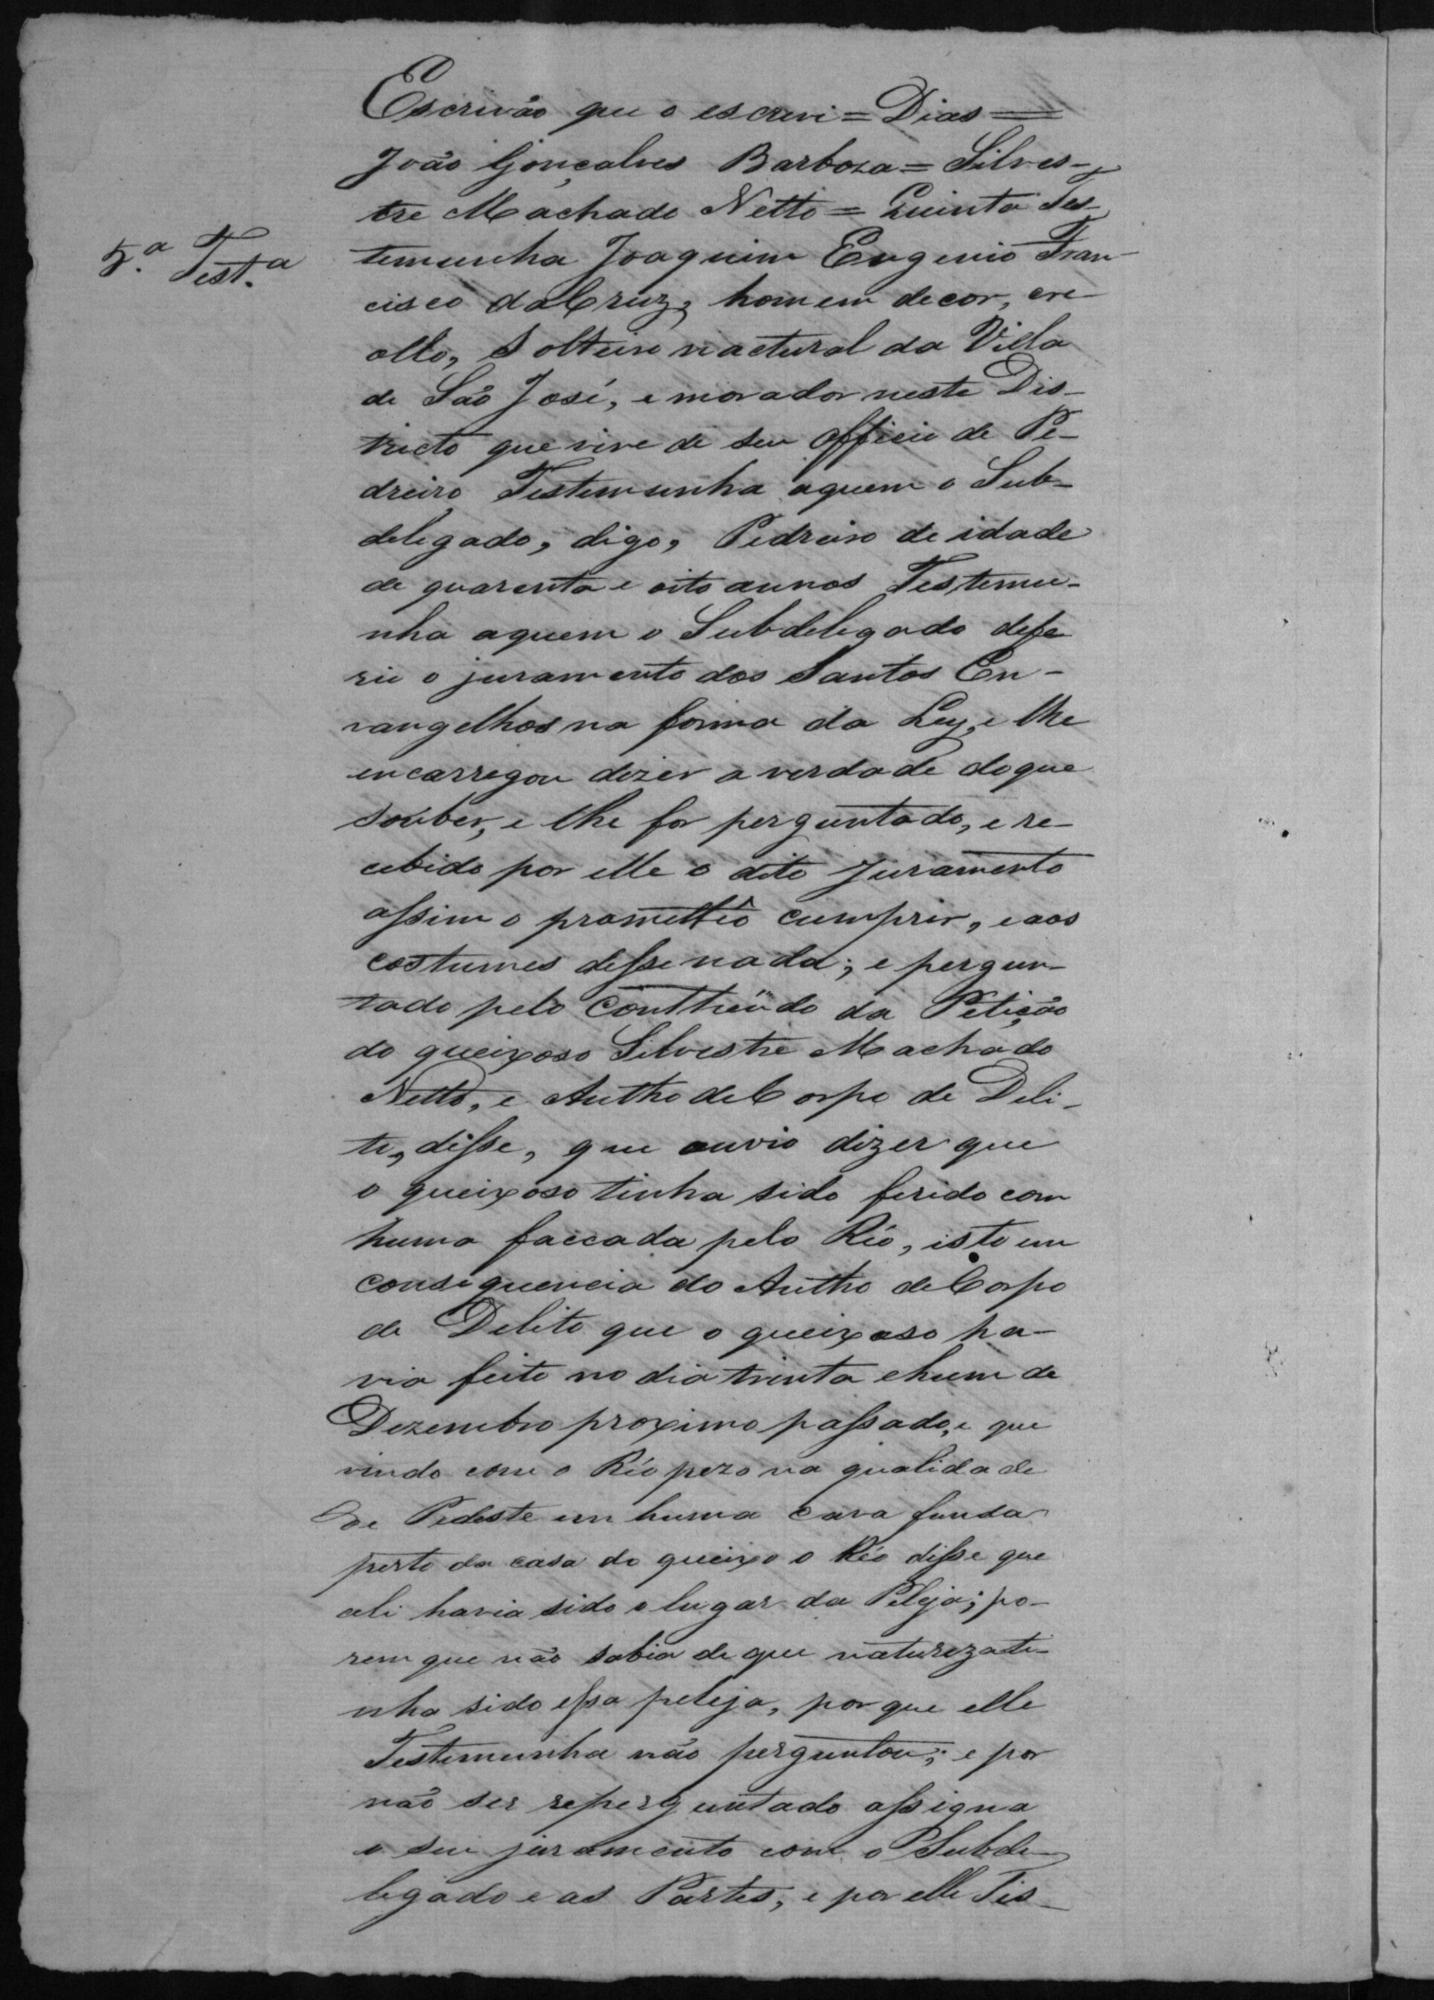 Escrivão que o escrevi = Dias =
João Gonçalves Barboza = Silves-
tre Machado Netto = Quinta Tes-
5.ª Test.ª
temunha Joaquim Eugenio Fran-
cisco da Cruz, homem de cor, cre-
ollo, Solteiro nactural da Villa
de São José, e morador neste Dis-
tricto que vive de seu officio de Pe-
dreiro Testemunha aquem o Sub-
delegado, digo, Pedreiro de idade
de quarenta e oito annos Testemu-
nha aquem o Subdelegado defe
rio o juramento dos Santos En-
vangelhos na forma da Ley, e lhe
encarregou dizer a verdade do que
souber, e lhe for perguntado, e re-
cebido por elle o dito juramento
assim o promettêo cumprir, e aos
costumes desse nada; e pergun-
tado pelo Conttheüdo da Petição
do queixoso Silvestre Machado
Netto, e Autho de Corpo de Deli-
to, disse, que ouvio dizer que
o queixoso tinha sido ferido com
huma faccada pelo Réo, isto em
consequencia do Autho de Corpo
de Delito que o queixoso ha-
via feito no dia trinta e hum de
Dezembro proximo passado, e que
vindo com o Réo pezo na qualidade
de Pedeste em huma cava funda
perto da casa do queixo o Réo disse que
ali havia sido o lugar da Peleja; po-
rem que não sabia de que natureza ti-
nha sido essa peleja, por que elle
Testemunha não perguntou; e por
não ser reperguntado assigna
o seu juramento com o Subde-
legado e as Partes, e por elle Tes-